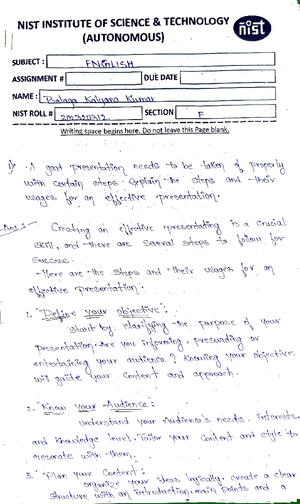 NIST INSTITUTE OF SCIENCE & TECHNOLOGY
(AUTONOMOUS)
nist
SUBJECT : ENGLISH
ASSIGNMENT # DUE DATE
NAME : Balaga Kalyana Kumar
NIST ROLL # SECTION F
Writing space begins here. Do not leave this Page blank.
1) A goat presentation needs to be taken of properly
with certain steps. Explain the steps and their
usages for an effective presentation.
Ans:- Creating an effective presentating is a crucial
skill, and there are several steps to follow for
success.
- Here are the steps and their usages for an
effective presentation.
1. "Define your objective":
start by clarifying the purpose of your
presentation, Are you informing, presuading or
entertaining your audience? Knowing your objective
will guide your content and approach.
2. "Know your Audience":
understand your audience's needs, interests,
and knowledge level. Tailor your content and style to
resonate with them.
3. "Plan your Content":
organize your ideas logically. create a clear
structure with an introduction, main points and a